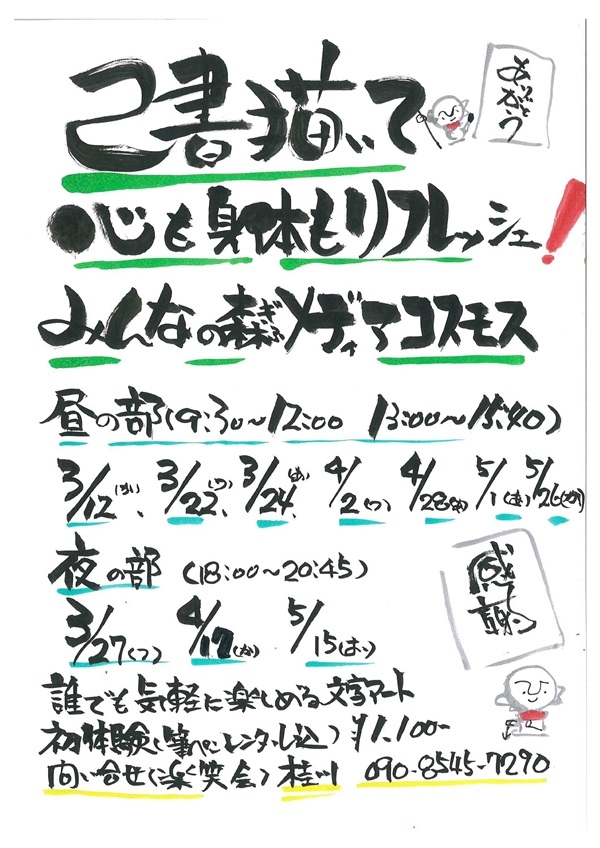 己書描いて
ありがとう
●心も身体もリフレッシュ!
みんなの森ぎふメディアコスモス
昼の部(9:30~12:00 13:00~15:40)
3/12 3/22 3/24 4/2 4/28 5/1 5/26
夜の部 (18:00~20:45)
3/27 4/17 5/15
感謝
誰でも気軽に楽しめる文字アート
初体験(筆ペンレンタル込) ¥1,100-
問い合せ(楽笑会) 桂川 090-8545-7290